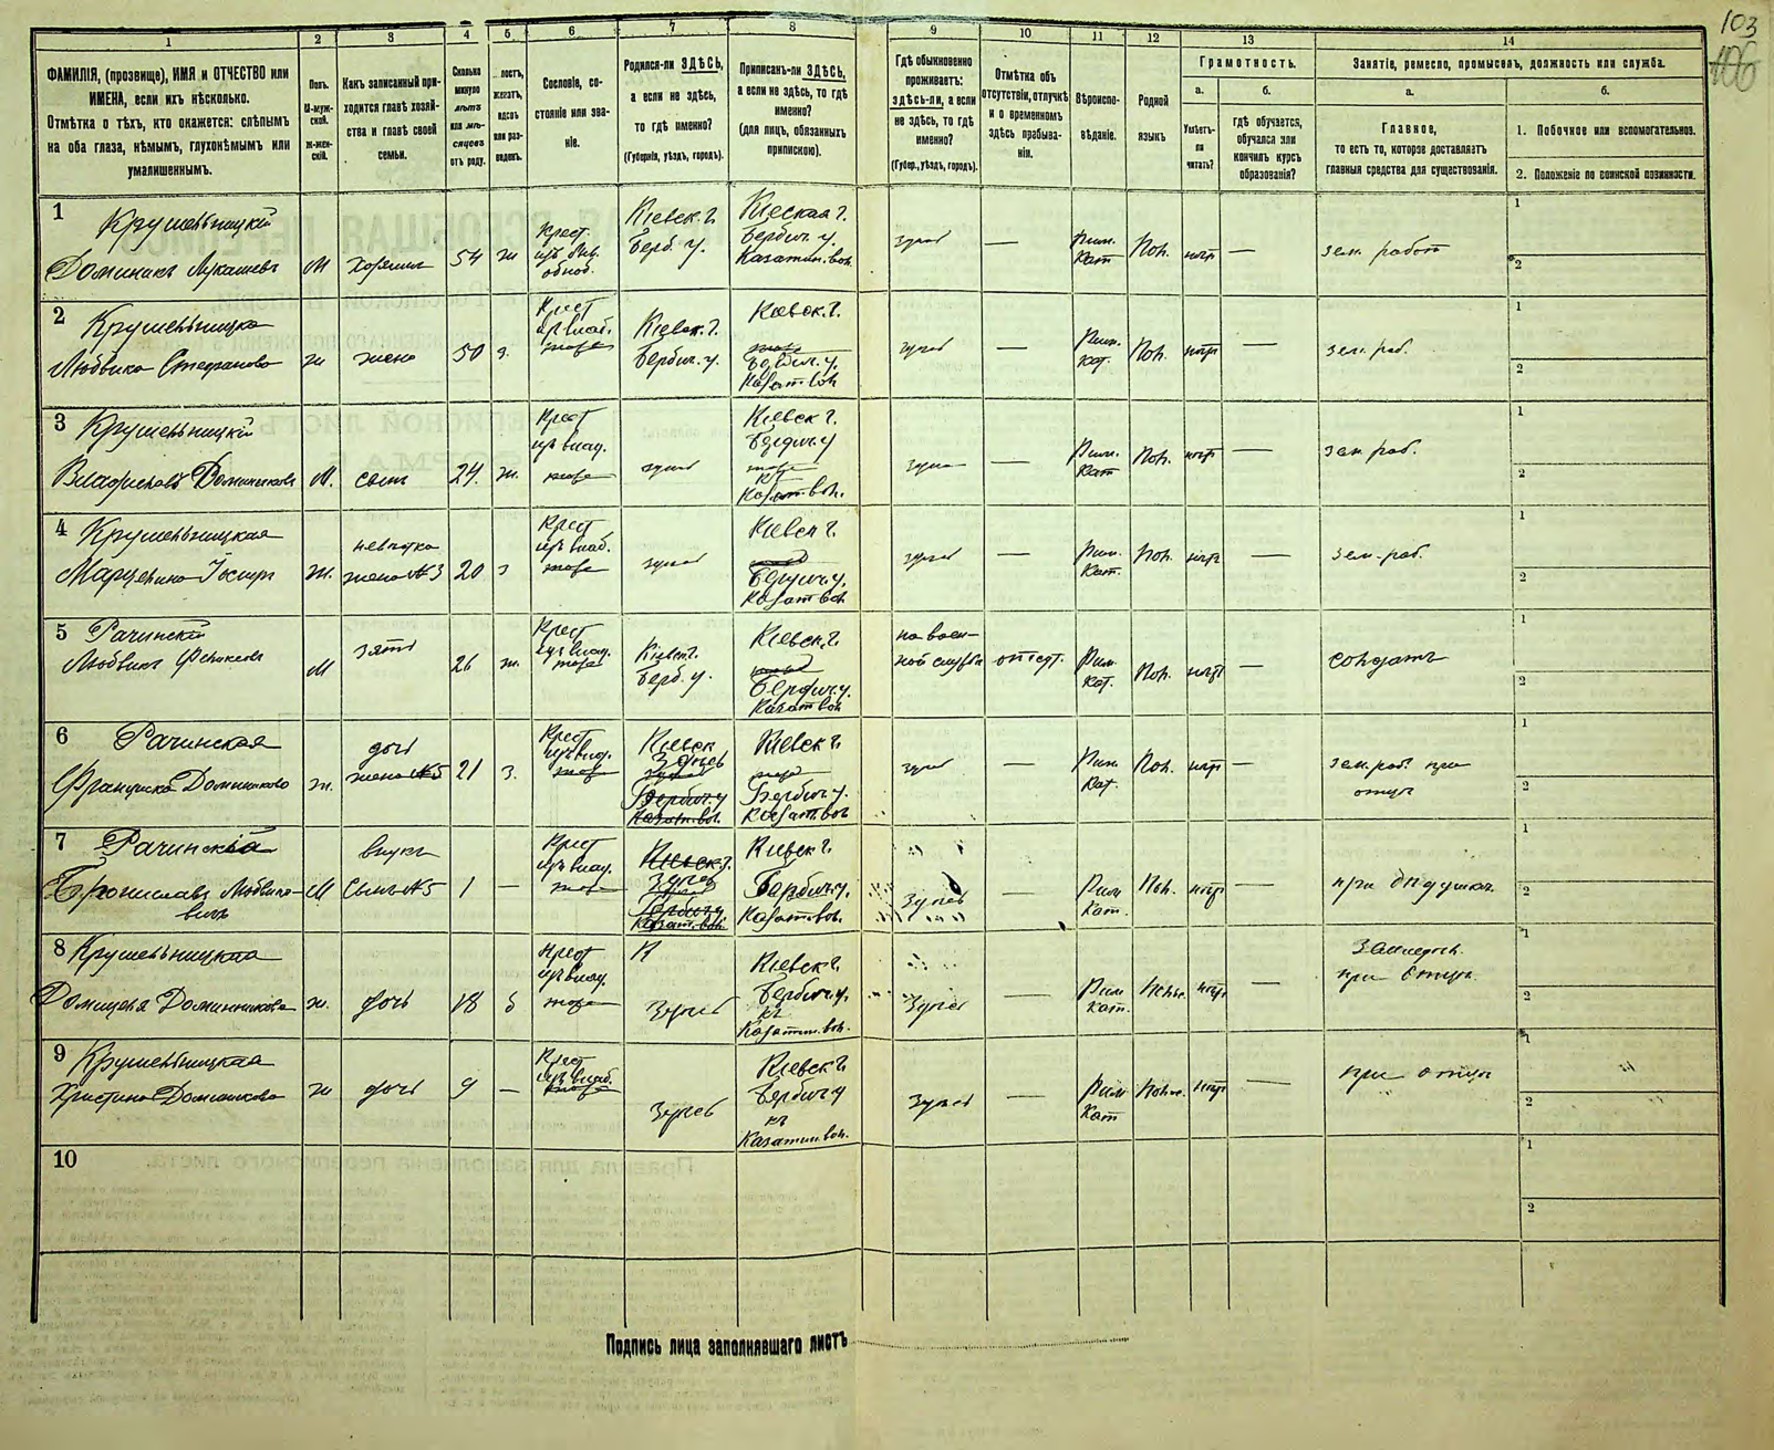 103
106
1
2
3
4
5
6
7
8
9
10
11
12
13
14
ФАМИЛІЯ, (прозвище), ИМЯ и ОТЧЕСТВО или
ИМЕНА, если ихъ нѣсколько.
Отмѣтка о тѣхъ, кто окажется: слѣпымъ
на оба глаза, нѣмымъ, глухонѣмымъ или
умалишеннымъ.
Полъ.
М-муж-
ской.
Ж-жен-
скій.
Какъ записанный при-
ходится главѣ хозяй-
ства и главѣ своей
семьи.
Сколько
минуло
лѣтъ
или мѣ-
сяцевъ
отъ роду.
лостъ,
женатъ,
вдовъ
или раз-
веденъ.
Сословіе, со-
стояніе или зва-
ніе.
Родился-ли ЗДѢСЬ,
а если не здѣсь,
то гдѣ именно?
(Губернія, уѣздъ, городъ).
Приписанъ-ли ЗДѢСЬ,
а если не здѣсь, то гдѣ
именно?
(для лицъ, обязанныхъ
припискою).
Гдѣ обыкновенно
проживаетъ:
здѣсь-ли, а если
не здѣсь, то гдѣ
именно?
(Губер., уѣздъ, городъ).
Отмѣтка объ
отсутствіи, отлучкѣ
и о временномъ
здѣсь пребыва-
ніи.
Вѣроиспо-
вѣданіе.
Родной
языкъ
Грамотность.
а.
б.
Умѣетъ-
ли
читать?
гдѣ обучается,
обучался или
кончилъ курсъ
образованія?
Занятіе, ремесло, промыселъ, должность или служба.
а.
б.
Главное,
то есть то, которое доставляетъ
главныя средства для существованія.
1. Побочное или вспомогательное.
2. Положеніе по воинской повинности.
1 Крушельницкій
Доминикъ Лукашевъ М хозяинъ 54 ж Крест. Кіевск. г. Берд. у. Кіевская г. Бердич. у. Казатин. вол. здѣсь — Рим. Кат Пол. нѣтъ — зем. работ
1
2
2 Крушельницка
Людвика Стефанова ж жена 50 з. Крест Кіевск. г. Бердич. у. Кіевск. г. Бердич. у. Казат. вол здѣсь — Рим. Кат. Пол. нѣтъ — зем. раб.
1
2
3 Крушельницкій
Владиславъ Доминиковъ М. сынъ 24. ж. Крест здѣсь Кіевск г. Бердич. у Казат. вол. здѣсь — Рим. Кат Пол. нѣтъ — зем. раб.
1
2
4 Крушельницкая
ж. невѣстка жена №3 20 з Крест здѣсь Кіевск г. Бердич. у. Казат вол здѣсь — Рим. Кат. Пол. нѣтъ — зем. раб.
1
2
5 Рачинскій
Людвикъ М зять 26 ж. Крест Кіевск. г. Берд. у. Кіевск. г. Бердич. у. Казат вол на воен- ной службѣ отсут. Рим. Кат. Пол. нѣтъ — солдатъ
1
2
6 Рачинская
Франциска Доминикова ж. дочь жена №5 21 з. Крест Кіевск Здѣсь Бердич. у Казат. вол. Кіевск г. Бердич. у. Казат. вол здѣсь — Рим. Кат. Пол. нѣтъ — зем. раб. при отцѣ
1
2
7 Рачинскій
Брониславъ Людвико-
вичъ М внукъ сынъ №5 1 — Крест Кіевск г. Здѣсь Бердич. у Казат. вол. Кіевск г. Бердич. у. Казат. вол. Здѣсь — Рим Кат. Пол. нѣтъ — при дѣдушкѣ
1
2
8 Крушельницкая
Доминикова ж. дочь 18 б Крест Здѣсь Кіевск г. Бердич. у. Казатин. вол. Здѣсь — Рим Кат. нѣтъ — при отцѣ
1
2
9 Крушельницкая
Христина Доминикова ж дочь 9 — Крест Здѣсь Кіевск г. Бердич. у Казатин. вол. Здѣсь — Рим Кат нѣтъ — при отцѣ
1
2
10
1
2
Подпись лица заполнявшаго листъ